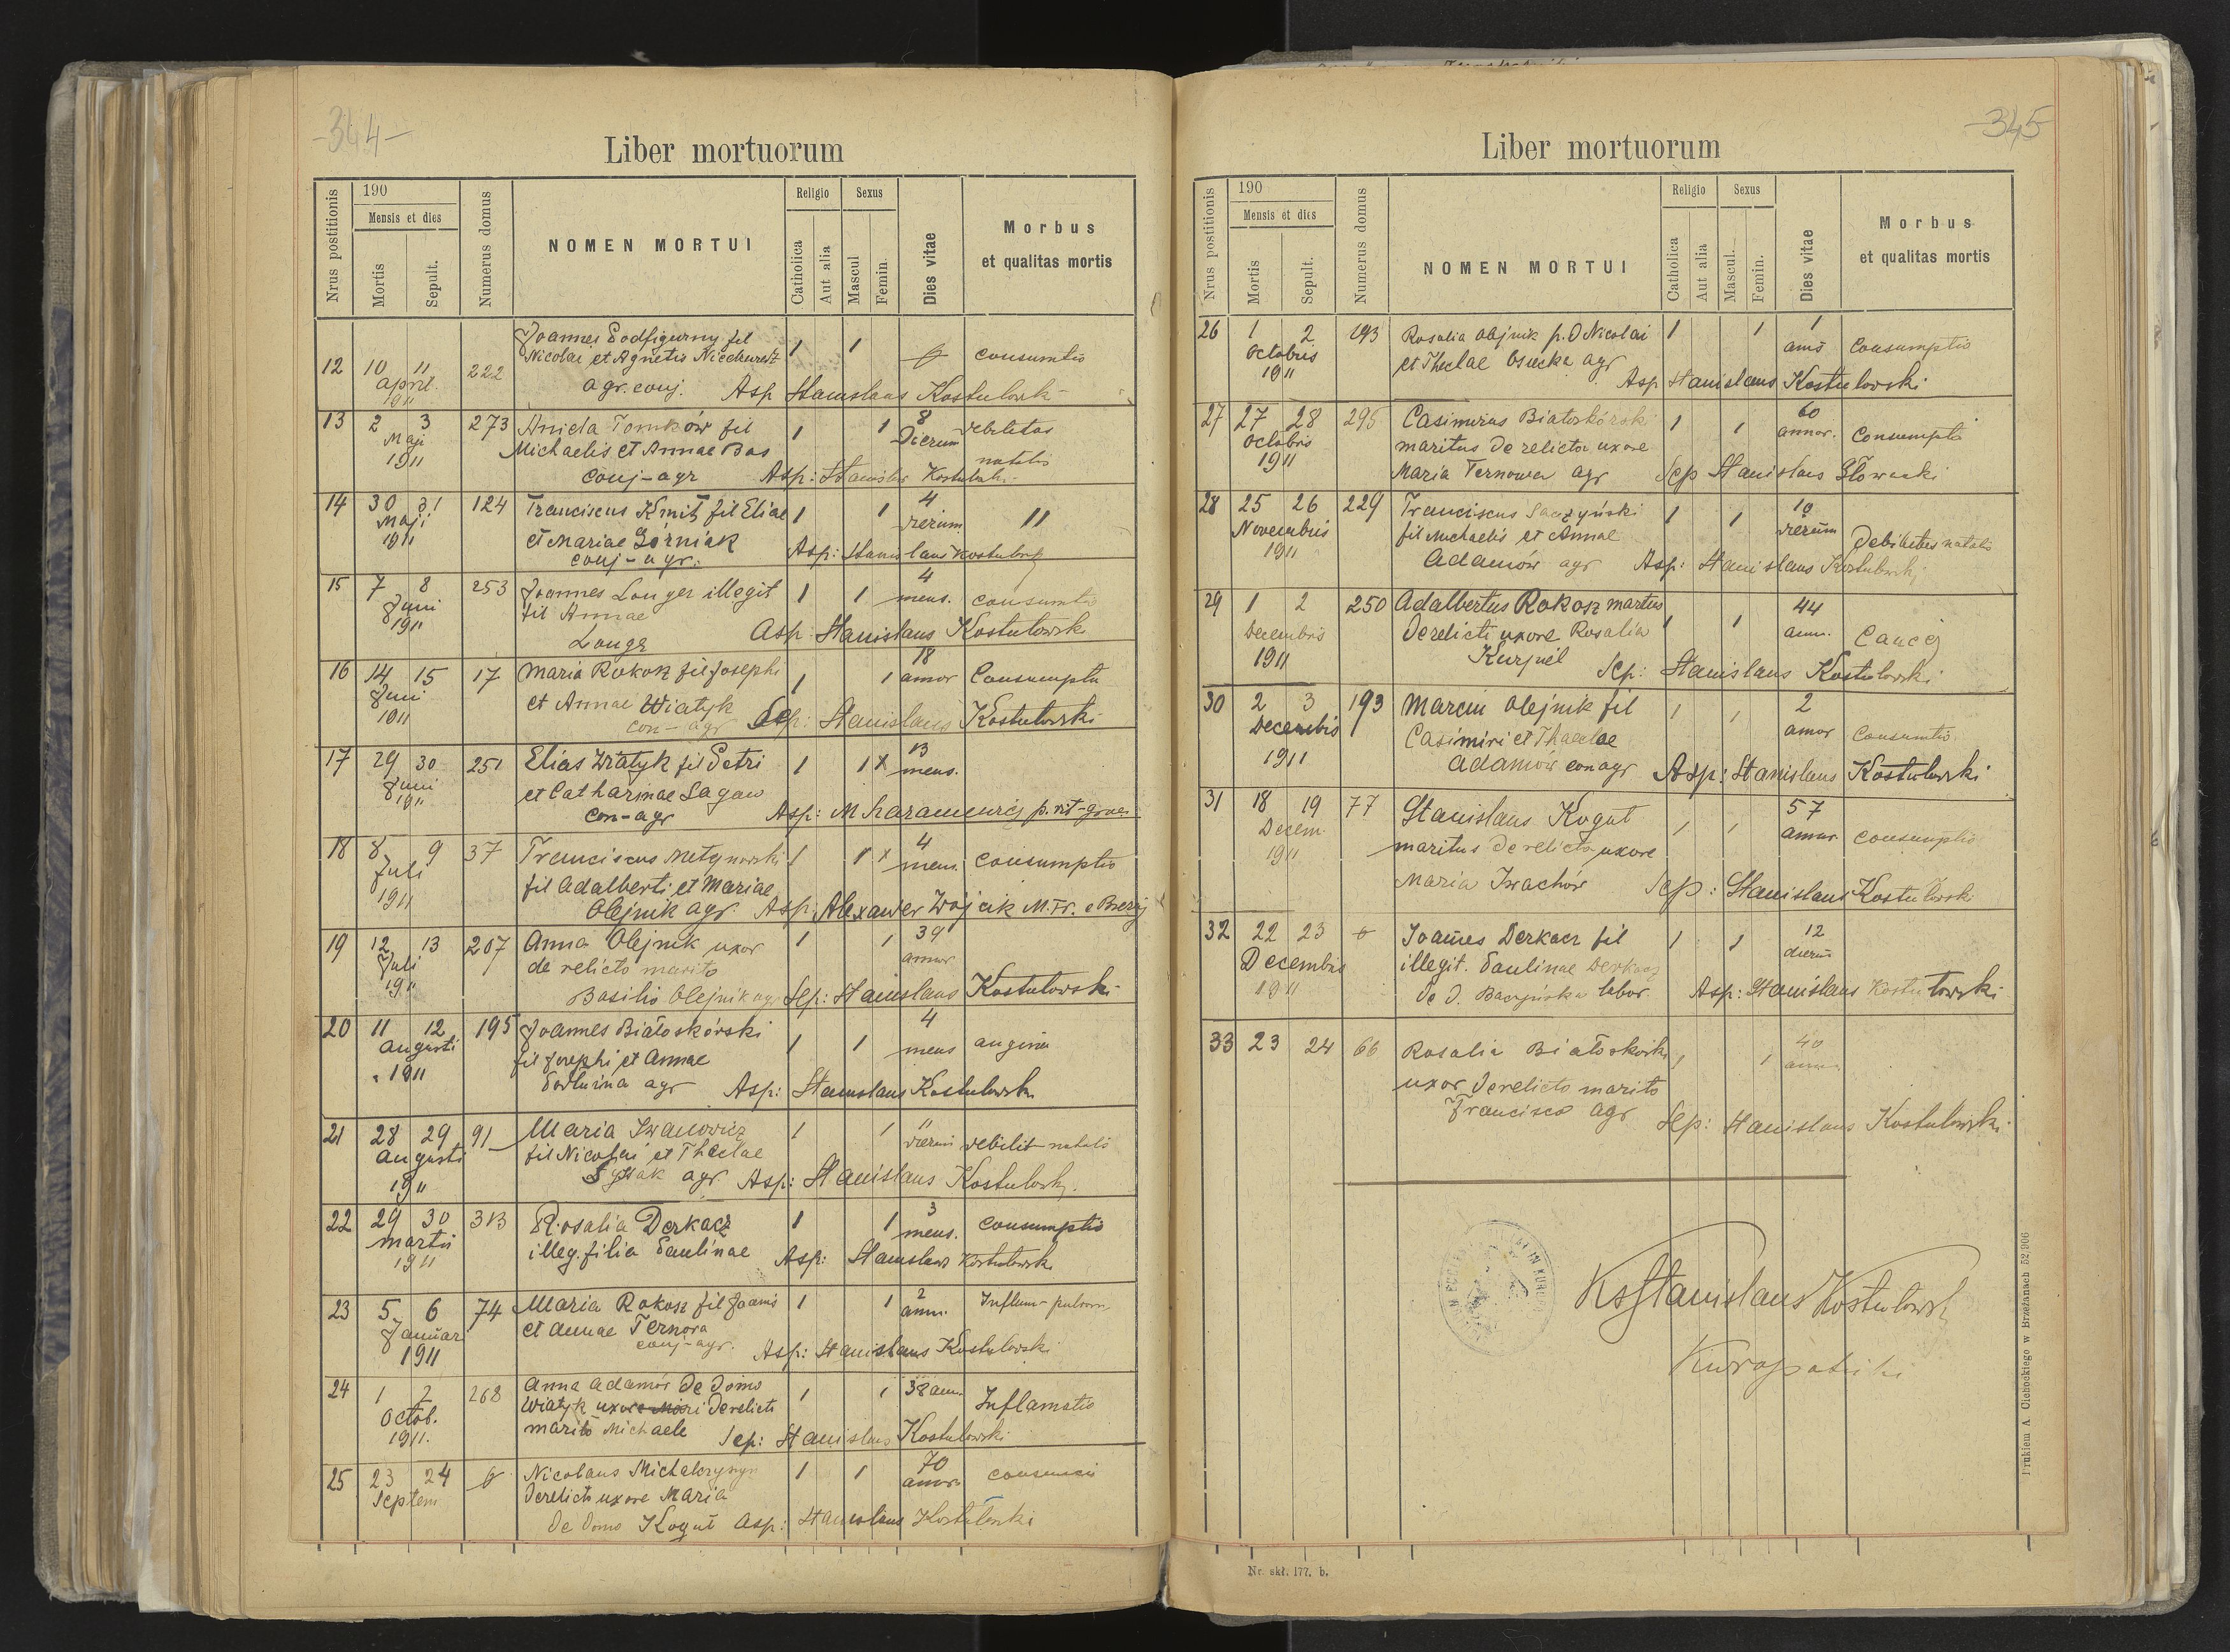 -344-
Liber mortuorum
Nrus postitionis
190
Mensis et dies
Mortis
Sepult.
Numerus domus
NOMEN MORTUI
Religio
Catholica
Aut alia
Sexus
Mascul
Femin.
Dies vitae
Morbus
et qualitas mortis
12 10 11 222 Joannes Podfigurny fil 1 1 consumtio
april. Nicolai et Agnetis
1911 agr. conj. Asp Stanislaus Kostulowski
13 2 3 273 Aniela Tomków fil 1 1 8 debilitas
Maji Michaelis et Annae Bas Dierum natalis
1911 conj-agr Asp: Stanislaus Kostulowski
14 30 31 124 Franciscus Kmit fil Eliae 1 1 4 11
Maji et Mariae Górniak dierum
1911 conj-agr. Asp: Stanislaus Kostulowski
15 7 8 253 Joannes Longer illegit 1 1 4
Juni fil Annae mens. consumtio
1911 Longer Asp Stanislaus Kostulowski
16 14 15 17 Maria Rokosz fil Josephi 1 1 18
Juni et Annae Wiatyk annor Consumptio
1911 con-agr Sep: Stanislaus Kostulowski
17 29 30 251 Elias Wiatyk fil Petri 1 1 x 13
Juni et Catharinae Sagan mens.
1911 con-agr Asp: M p. rit-graec.
18 8 9 37 Franciscus 1 1 x 4
Juli fil Adalberti et Mariae mens. consumptio
1911 Olejnik agr. Asp: Alexander Wojcik
19 12 13 207 Anna Olejnik uxor 1 1 39
Juli de relicto marito annor
1911 Basilio Olejnik agr Sep: Stanislaus Kostulowski
20 11 12 195 Joannes Białoskórski 1 1 4
augusti fil Josephi et Annae mens angina
1911 agr Asp: Stanislaus Kostulowski
21 28 29 91 Maria Iwanowicz 1 1 11
augusti fil Nicolai et Theclae dierum debilit-natalis
1911 agr Asp: Stanislaus Kostulowski
22 29 30 313 Rosalia Derkacz 1 1 3
martii illeg. filia Paulinae mens. consumptio
1911 Asp: Stanislaus Kostulowski
23 5 6 74 Maria Rokosz fil Joannis 1 1 2 Inflam-pulmon
Januari et Annae Ternova ann.
1911 conj-agr. Asp: Stanislaus Kostulowski
24 1 2 268 Anna Adamów de domo 1 1 38 ann. Inflamatio
Octob. Wiatyk uxore derelicto
1911. marito Michaele Sep: Stanislaus Kostulowski
25 23 24 Nicolaus 1 1 70
Septem derelicta uxore Maria annor
de domo Kogut Asp: Stanislaus Kostulowski
-345-
Liber mortuorum
Nrus postitionis
190
Mensis et dies
Mortis
Sepult.
Numerus domus
NOMEN MORTUI
Religio
Catholica
Aut alia
Sexus
Mascul.
Femin.
Dies vitae
Morbus
et qualitas mortis
26 1 2 193 Rosalia Olejnik Nicolai 1 1 1
Octobris et Theclae agr Consumptio
1911 Asp Stanislaus Kostulowski
27 27 28 295 Casimirus Białoskórski 1 1 60
Octobris maritus derelicta uxore annor. Consumptio
1911 Maria Ternowa agr Sep Stanislaus Słowacki
28 25 26 229 Franciscus 1 1 10
Novembris fil Michaelis et Annae dierum debilitas natalis
1911 Adamów agr Asp: Stanislaus Kostulowski
29 1 2 250 Adalbertus Rokosz 1 1 44
Decembris derelicta uxore Rosalia ann.
1911 Sep: Stanislaus Kostulowski
30 2 3 193 Marcin Olejnik fil 1 1 2
Decembris Casimiri et Theclae annor consumtio
1911 Adamow con agr Asp: Stanislaus Kostulowski
31 18 19 77 Stanislaus Kogut 1 1 57
Decem. maritus derelicta uxore annor. consumptio
1911 Maria Iwachów Sep: Stanislaus Kostulowski
32 22 23 Joannes Derkacz fil 1 1 12
Decembris illegit. Paulinae Derkacz dierum
1911 de D. labor Asp: Stanislaus Kostulowski
33 23 24 66 Rosalia Białoskórski 1 1 40
uxor derelicto marito ann.
Francisco agr Sep: Stanislaus Kostulowski
Ks Stanislaus Kostulowski
Kuropatniki
Drukiem A Cichockiego w Brzeżanach 52/906
Nr. skł. 177. b.